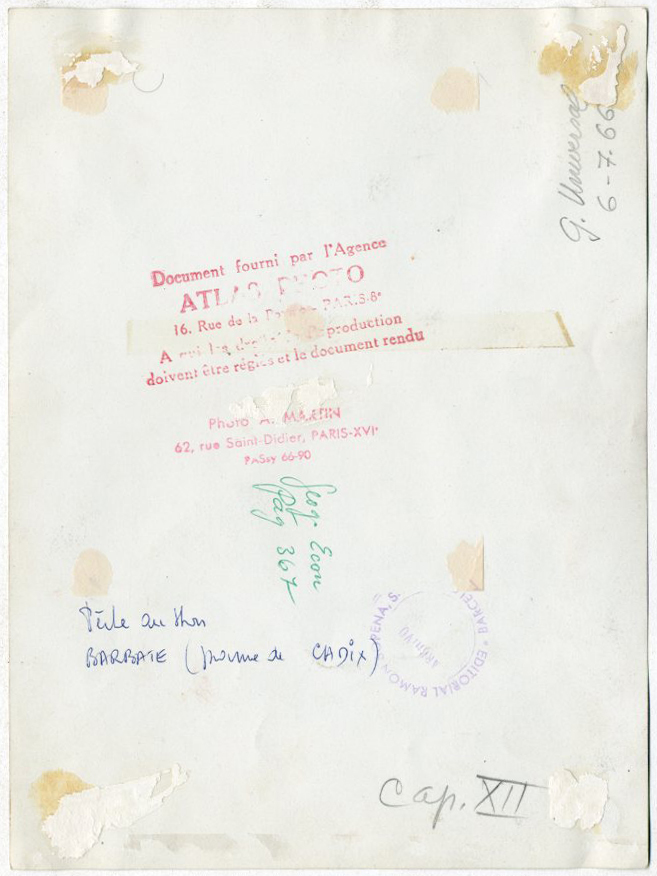 G. Universal
6-7-66
Document fourni par l'Agence
ATLAS PHOTO
16. Rue de la PARIS.8e
A qui les de Reproduction
doivent être réglés et le document rendu
Photo A. MARTIN
62, rue Saint-Didier, PARIS-XVIe
PASsy 66-90
Geog Econ
Pág 367
Pêche au thon
BARBATE (province de CADIX)
EDITORIAL RAMON SOPENA, S.
BARCEL
ARCHIVO
Cap. XII